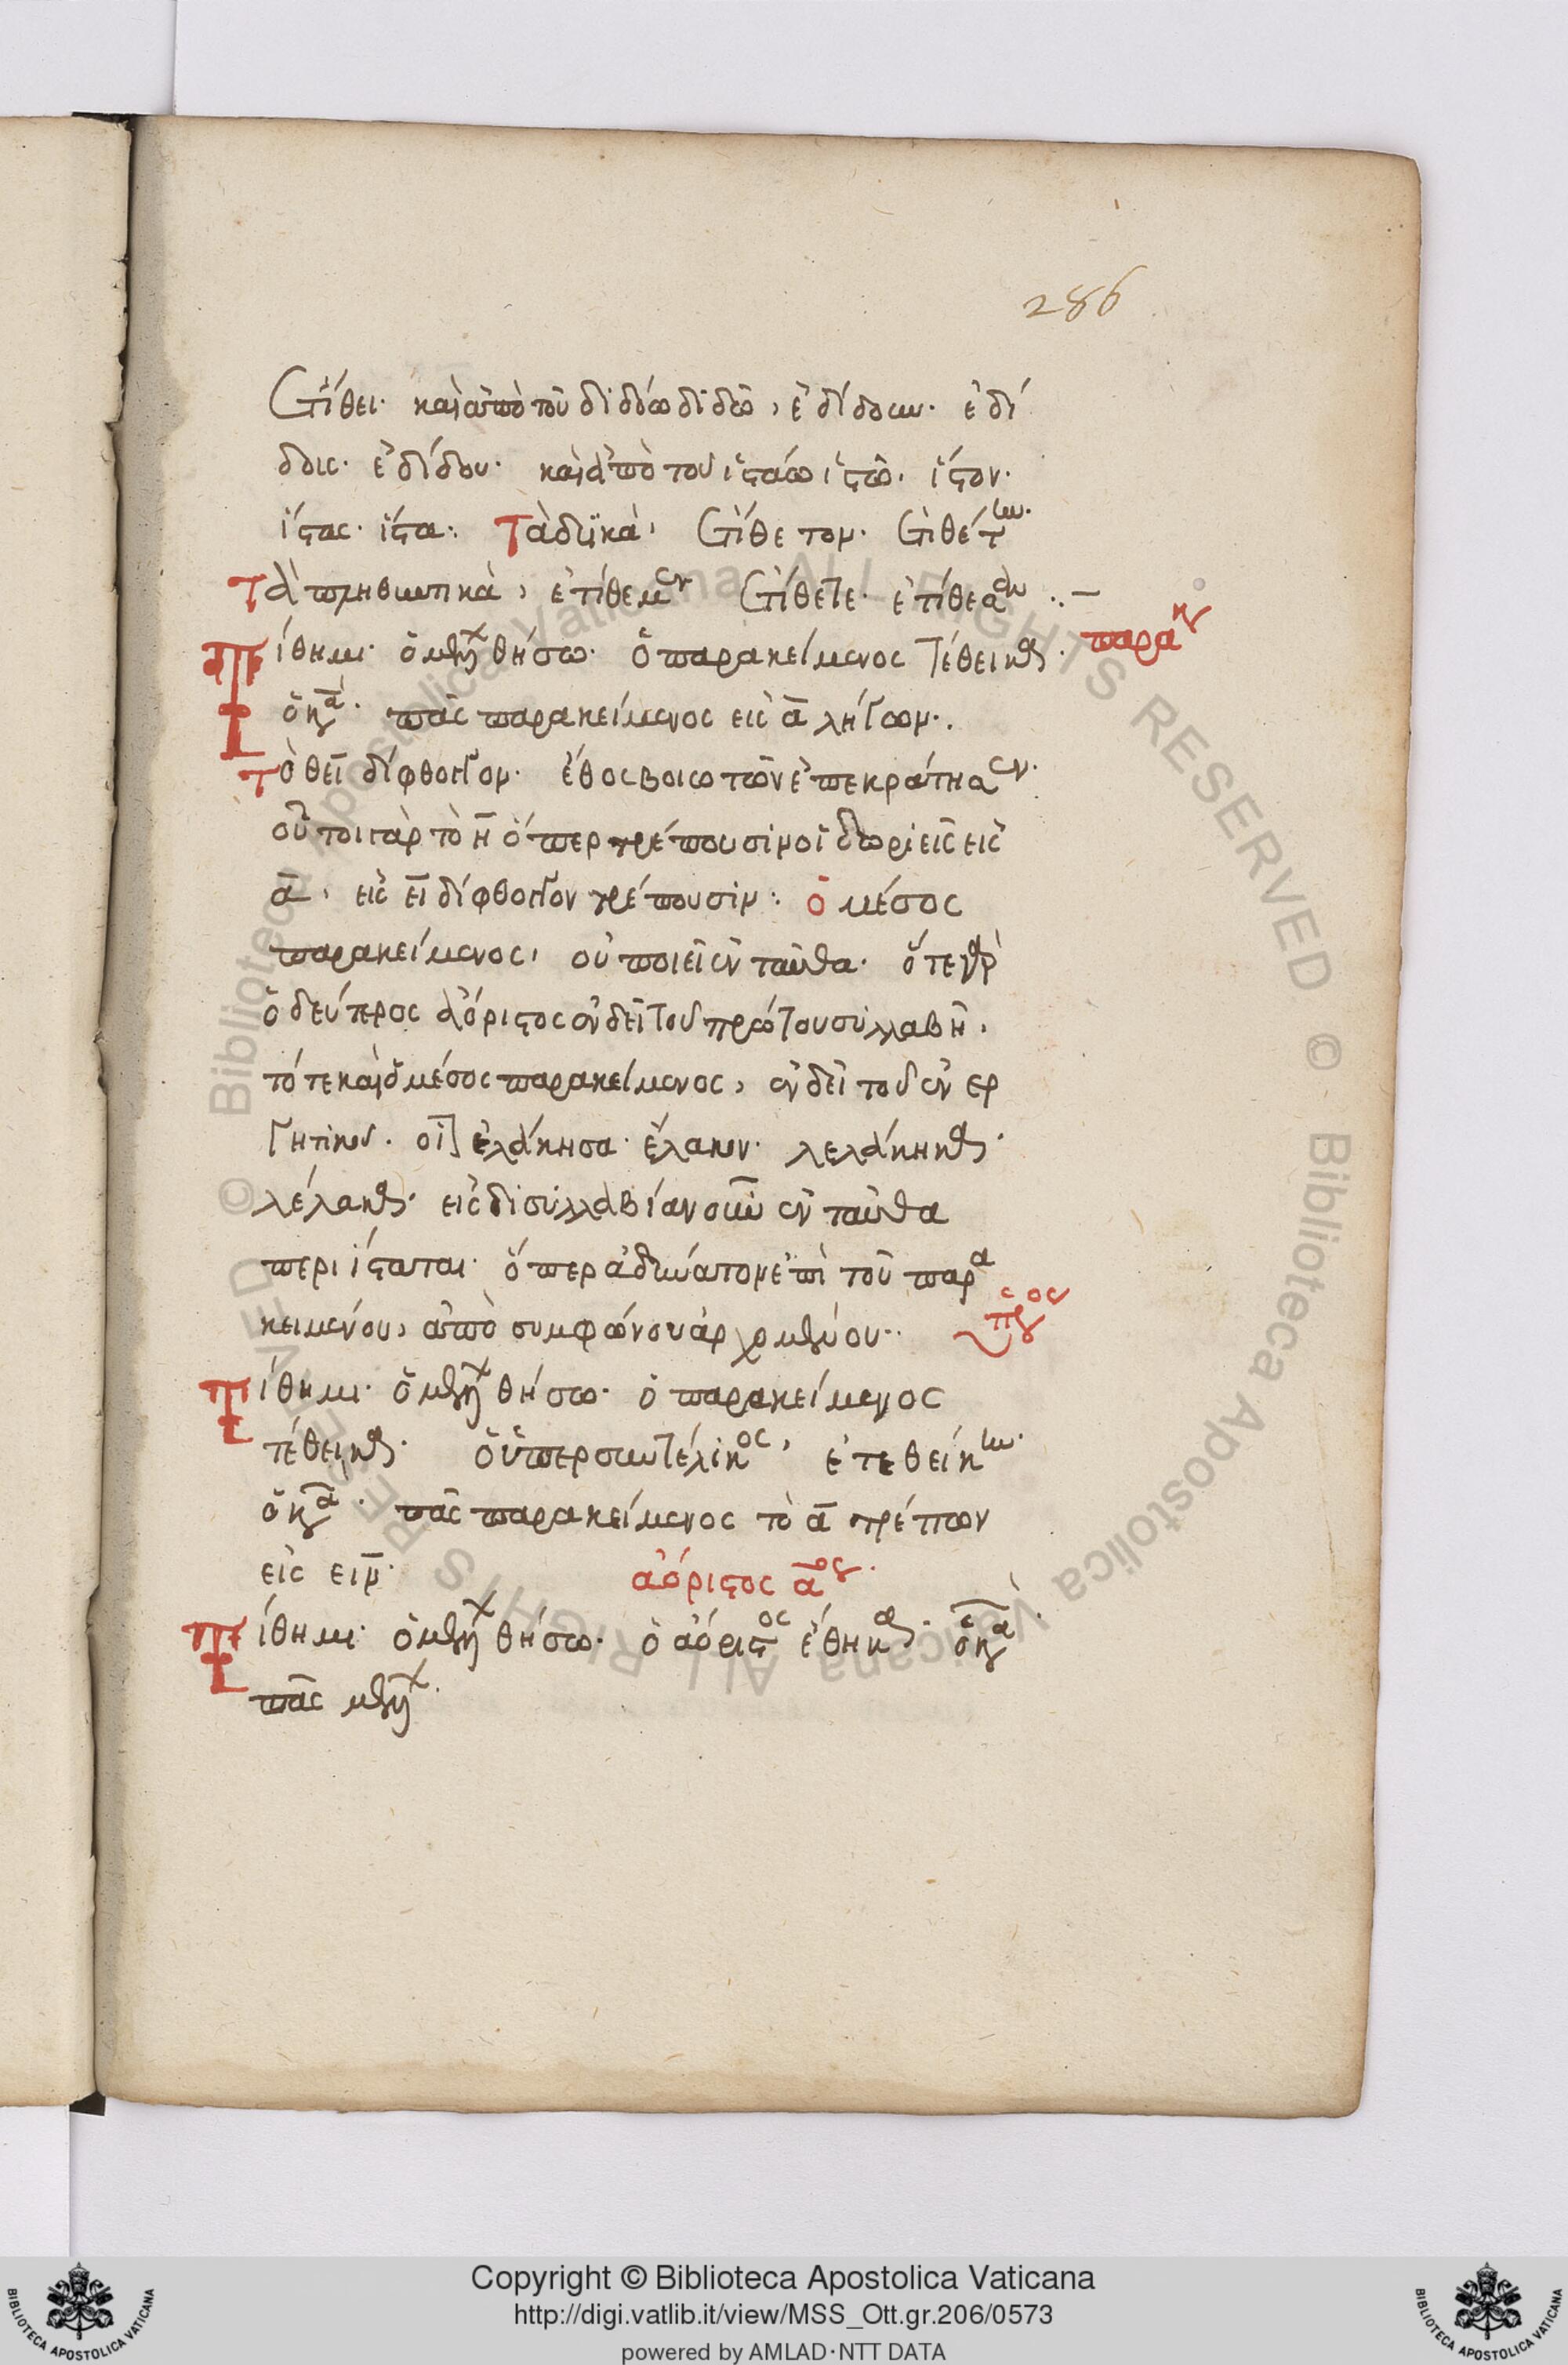 286
ἐτίθει· καὶ ἀπὸ τοῦ διδόω διδῶ, ἐδίδουν· ἐδί
δους· ἐδίδου· καὶ ἀπὸ τοῦ ἱστάω ἱστῶ, ἵστων·
ἵστας· ἵστα: Τὰ δυϊκὰ, ἐτίθετον· ἐτιθέτην·
Τὰ πληθυντικὰ, ἐτίθεμεν ἐτίθετε· ἐτίθεσαν ..–
παρακ
Τίθημι· ὁ μέλλων θήσω· ὁ παρακείμενος τέθεικα·
ὁ κανών· πᾶς παρακείμενος εἰς ᾱ λήγων·.
Τὸ θει δίφθογγον· ἔθος βοιωτῶν ἐπεκράτησεν·
οὗτοι γὰρ τὸ η ὅπερ τρέπουσιν οἱ δωριεῖς εἰς
ᾱ, εἰς ει δίφθογγον τρέπουσιν: ὁ μέσος
παρακείμενος, οὐ ποιεῖ ἐνταῦθα· ὅτε γὰρ
ὁ δεύτερος ἀόριστος ἐνδεῖ τοῦ πρώτου συλλαβῇ,
τότε καὶ ὁ μέσος παρακείμενος, ἐνδεῖ τοῦ ἐνερ
γητικοῦ. οἷον ἐλάκησα· ἔλακον· λελάκηκα·
λέλακα· εἰς δισυλλαβίαν οὖν ἐνταῦθα
περιίσταται· ὅπερ ἀδύνατον ἐπὶ τοῦ παρα
κειμένου, ἀπὸ συμφώνου ἀρχομένου··
ὑπερσ
Τίθημι· ὁ μέλλων θήσω· ὁ παρακείμενος
τέθεικα· ὁ ὑπερσυντέλικος, ἐτεθείκειν·
ὁ κανών· πᾶς παρακείμενος τὸ ᾱ τρέπων
εἰς ειν·
ἀόριστος αος·
Τίθημι· ὁ μέλλων θήσω· ὁ ἀόριστος ἔθηκα· ὁ κανών·
πᾶς μέλλων·
Copyright © Biblioteca Apostolica Vaticana
http://digi.vatlib.it/view/MSS_Ott.gr.206/0573
powered by AMLAD·NTT DATA
BIBLIOTECA APOSTOLICA VATICANA
BIBLIOTECA APOSTOLICA VATICANA
© Biblioteca Apostolica Vaticana ALL RIGHTS RESERVED © Biblioteca Apostolica Vaticana ALL RIGHTS RESERVED